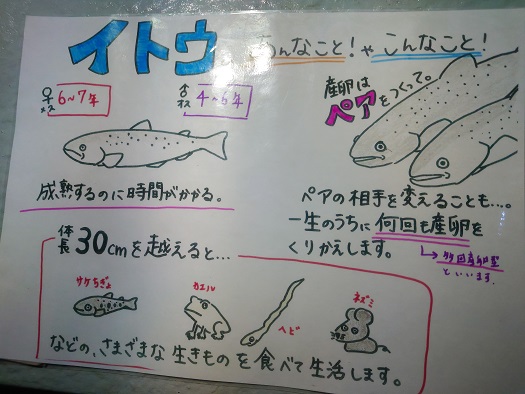 イトウ
あんなこと!や こんなこと!
♀メス 6~7年
♂オス 4~5年
成熟するのに時間がかかる。
産卵は
ペアをつくって。
ペアの相手を変えることも…。
一生のうちに何回も産卵を
くりかえします。
→多回産卵型
といいます。
体長30cmを越えると…
サケちぎょ
カエル
ヘビ
ネズミ
などの、さまざまな生きものを食べて生活します。